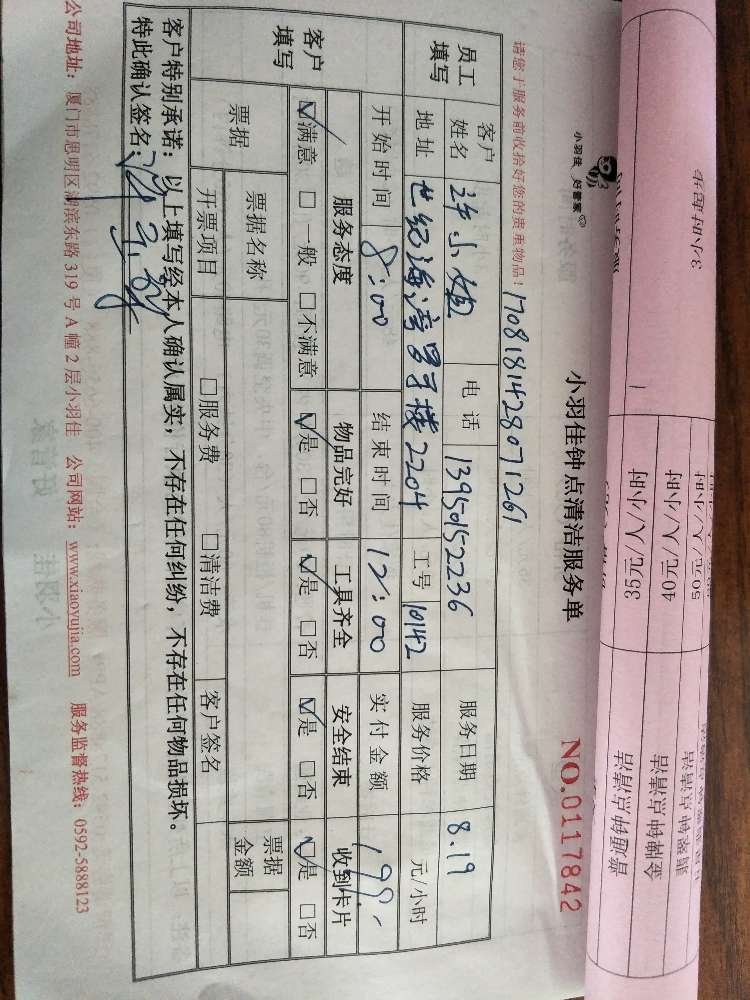 小羽佳 好管家
小羽佳钟点清洁服务单
NO.0117842
请您于服务前收拾好您的贵重物品！
1708181428071261
员工填写
客户姓名 许小姐 电话 13950152236 服务日期 8.19
地址 世纪海湾 号楼2204 工号 10142 服务价格 元/小时
开始时间 8:00 结束时间 12:00 实付金额 199.-
客户填写
服务态度 物品完好 工具齐全 安全结束 收到卡片
☑满意 □一般 □不满意 ☑是 □否 ☑是 □否 ☑是 □否 ☑是 □否
票据 票据名称 票据金额
开票项目 □服务费 □清洁费 客户签名
客户特别承诺：以上填写经本人确认属实，不存在任何纠纷，不存在任何物品损坏。
特此确认签名：
公司地址：厦门市思明区湖滨东路 319 号 A 幢 2 层小羽佳 公司网站：www.xiaoyujia.com 服务监督热线：0592-5888123
35元/人/小时
40元/人/小时
50元/人/小时